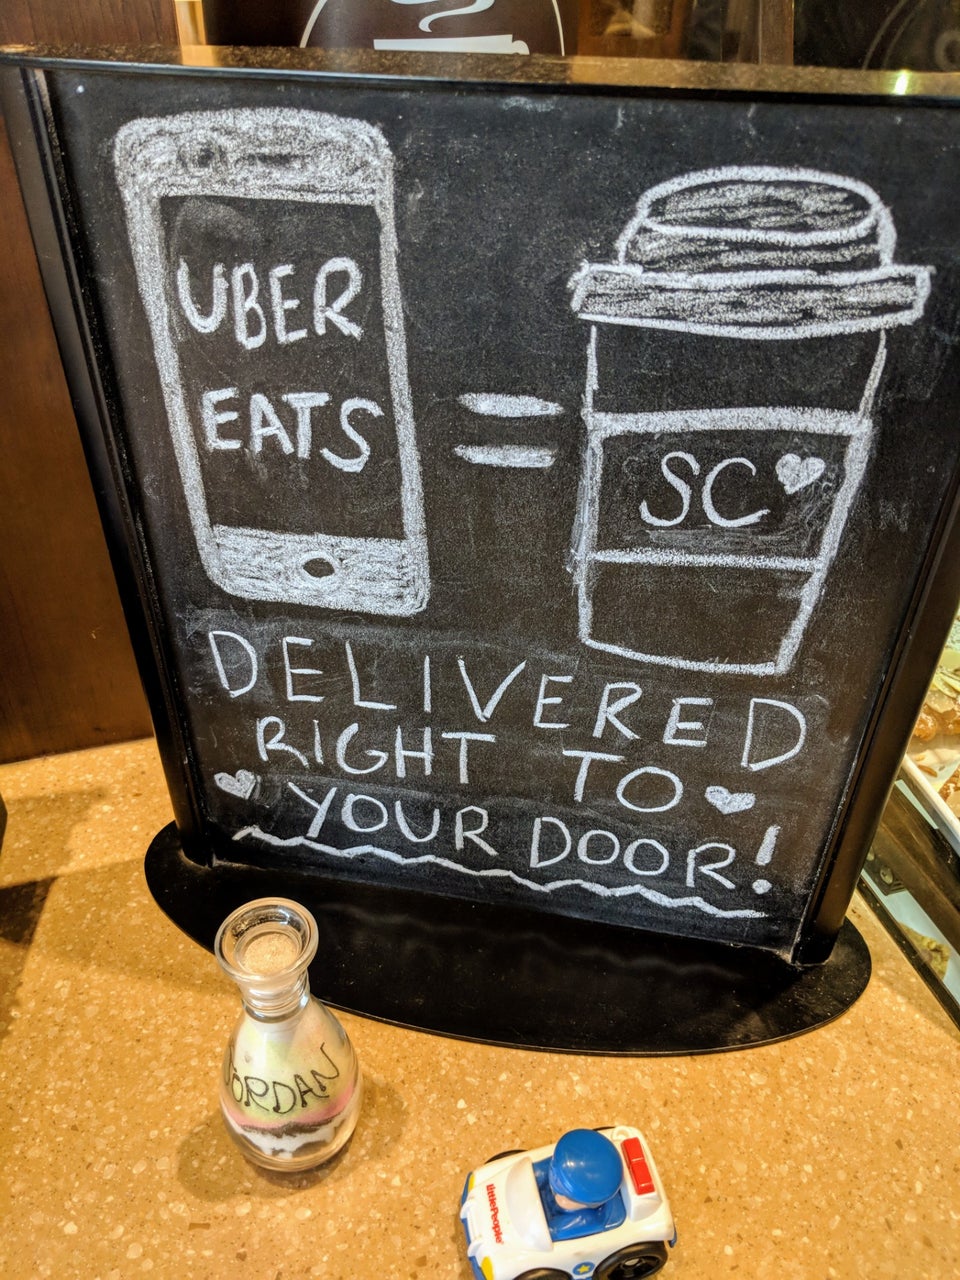 UBER
EATS
=
SC
DELIVERED
RIGHT TO
YOUR DOOR!
JORDAN
Little People